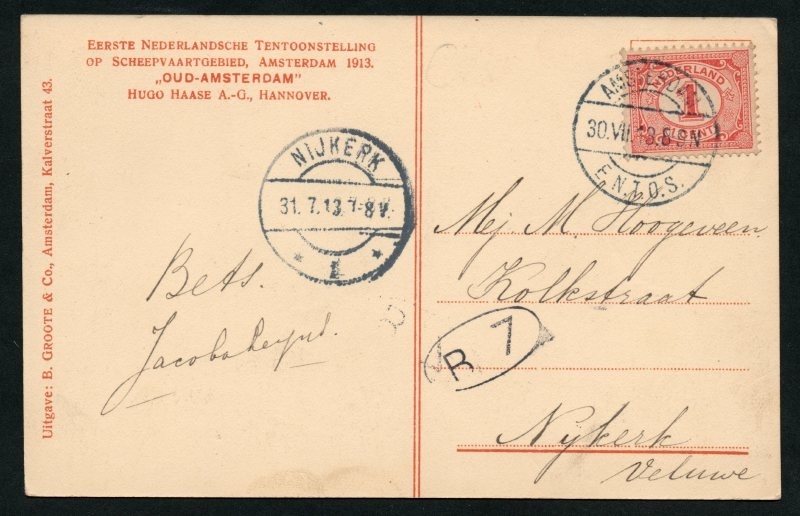 EERSTE NEDERLANDSCHE TENTOONSTELLING
OP SCHEEPVAARTGEBIED, AMSTERDAM 1913.
„OUD-AMSTERDAM”
HUGO HAASE A.-G., HANNOVER.
Uitgave: B. GROOTE & Co., Amsterdam, Kalverstraat 43.
NIJKERK
31. 7.13. 7-8 V.
* 1 *
Bets.
NEDERLAND
1
CENT
30.VII. 8-9 N
E.N.T.O.S.
Mej M. Hoogeveen
Kolkstraat
B 7
Nykerk
Veluwe